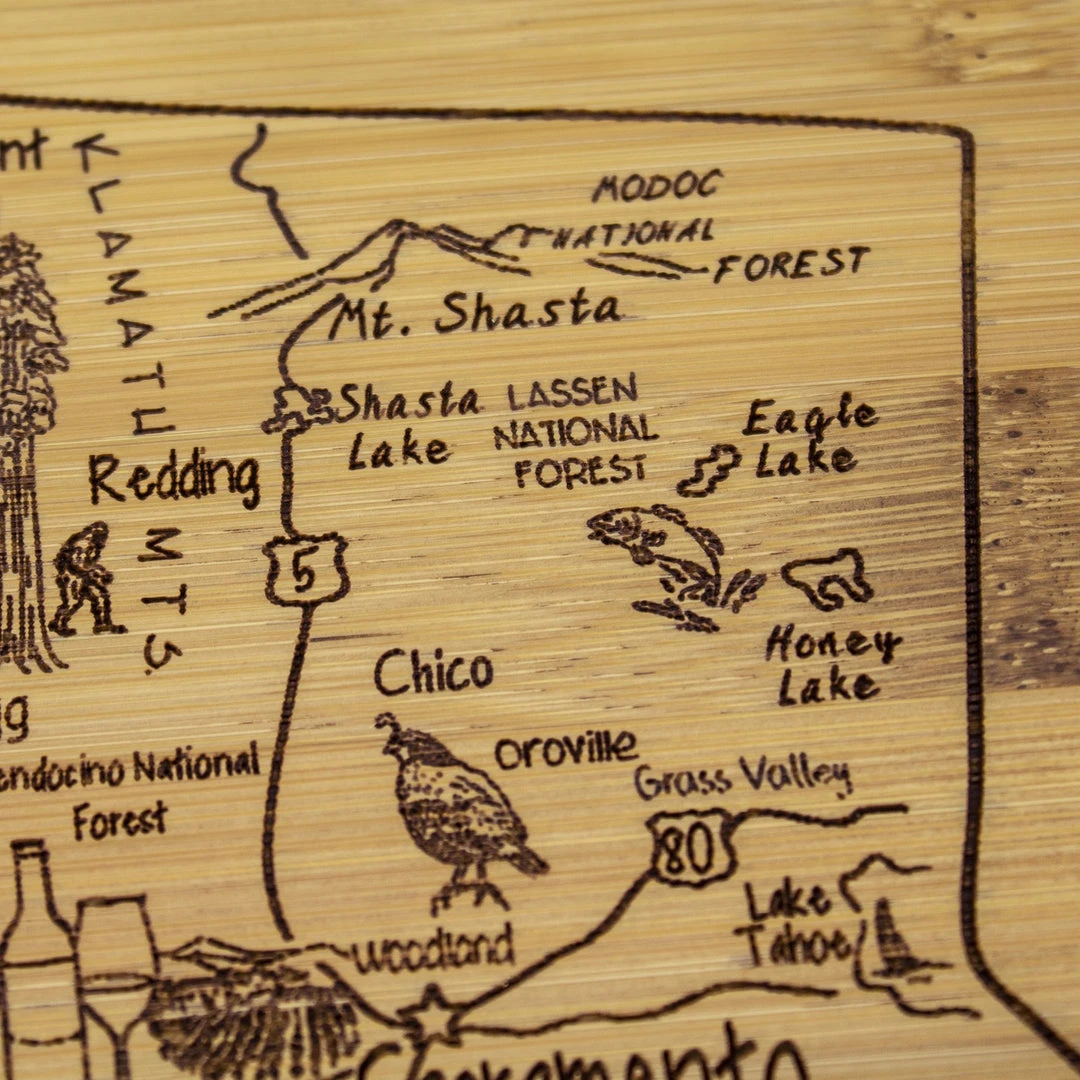 nt
KLAMATH
MTS.
MODOC
NATIONAL
FOREST
Mt. Shasta
Shasta
Lake
LASSEN
NATIONAL
FOREST
Eagle
Lake
Redding
5
Honey
Lake
Chico
ig
Oroville
endocino National
Forest
Grass Valley
80
Lake
Tahoe
Woodland
Sacramento